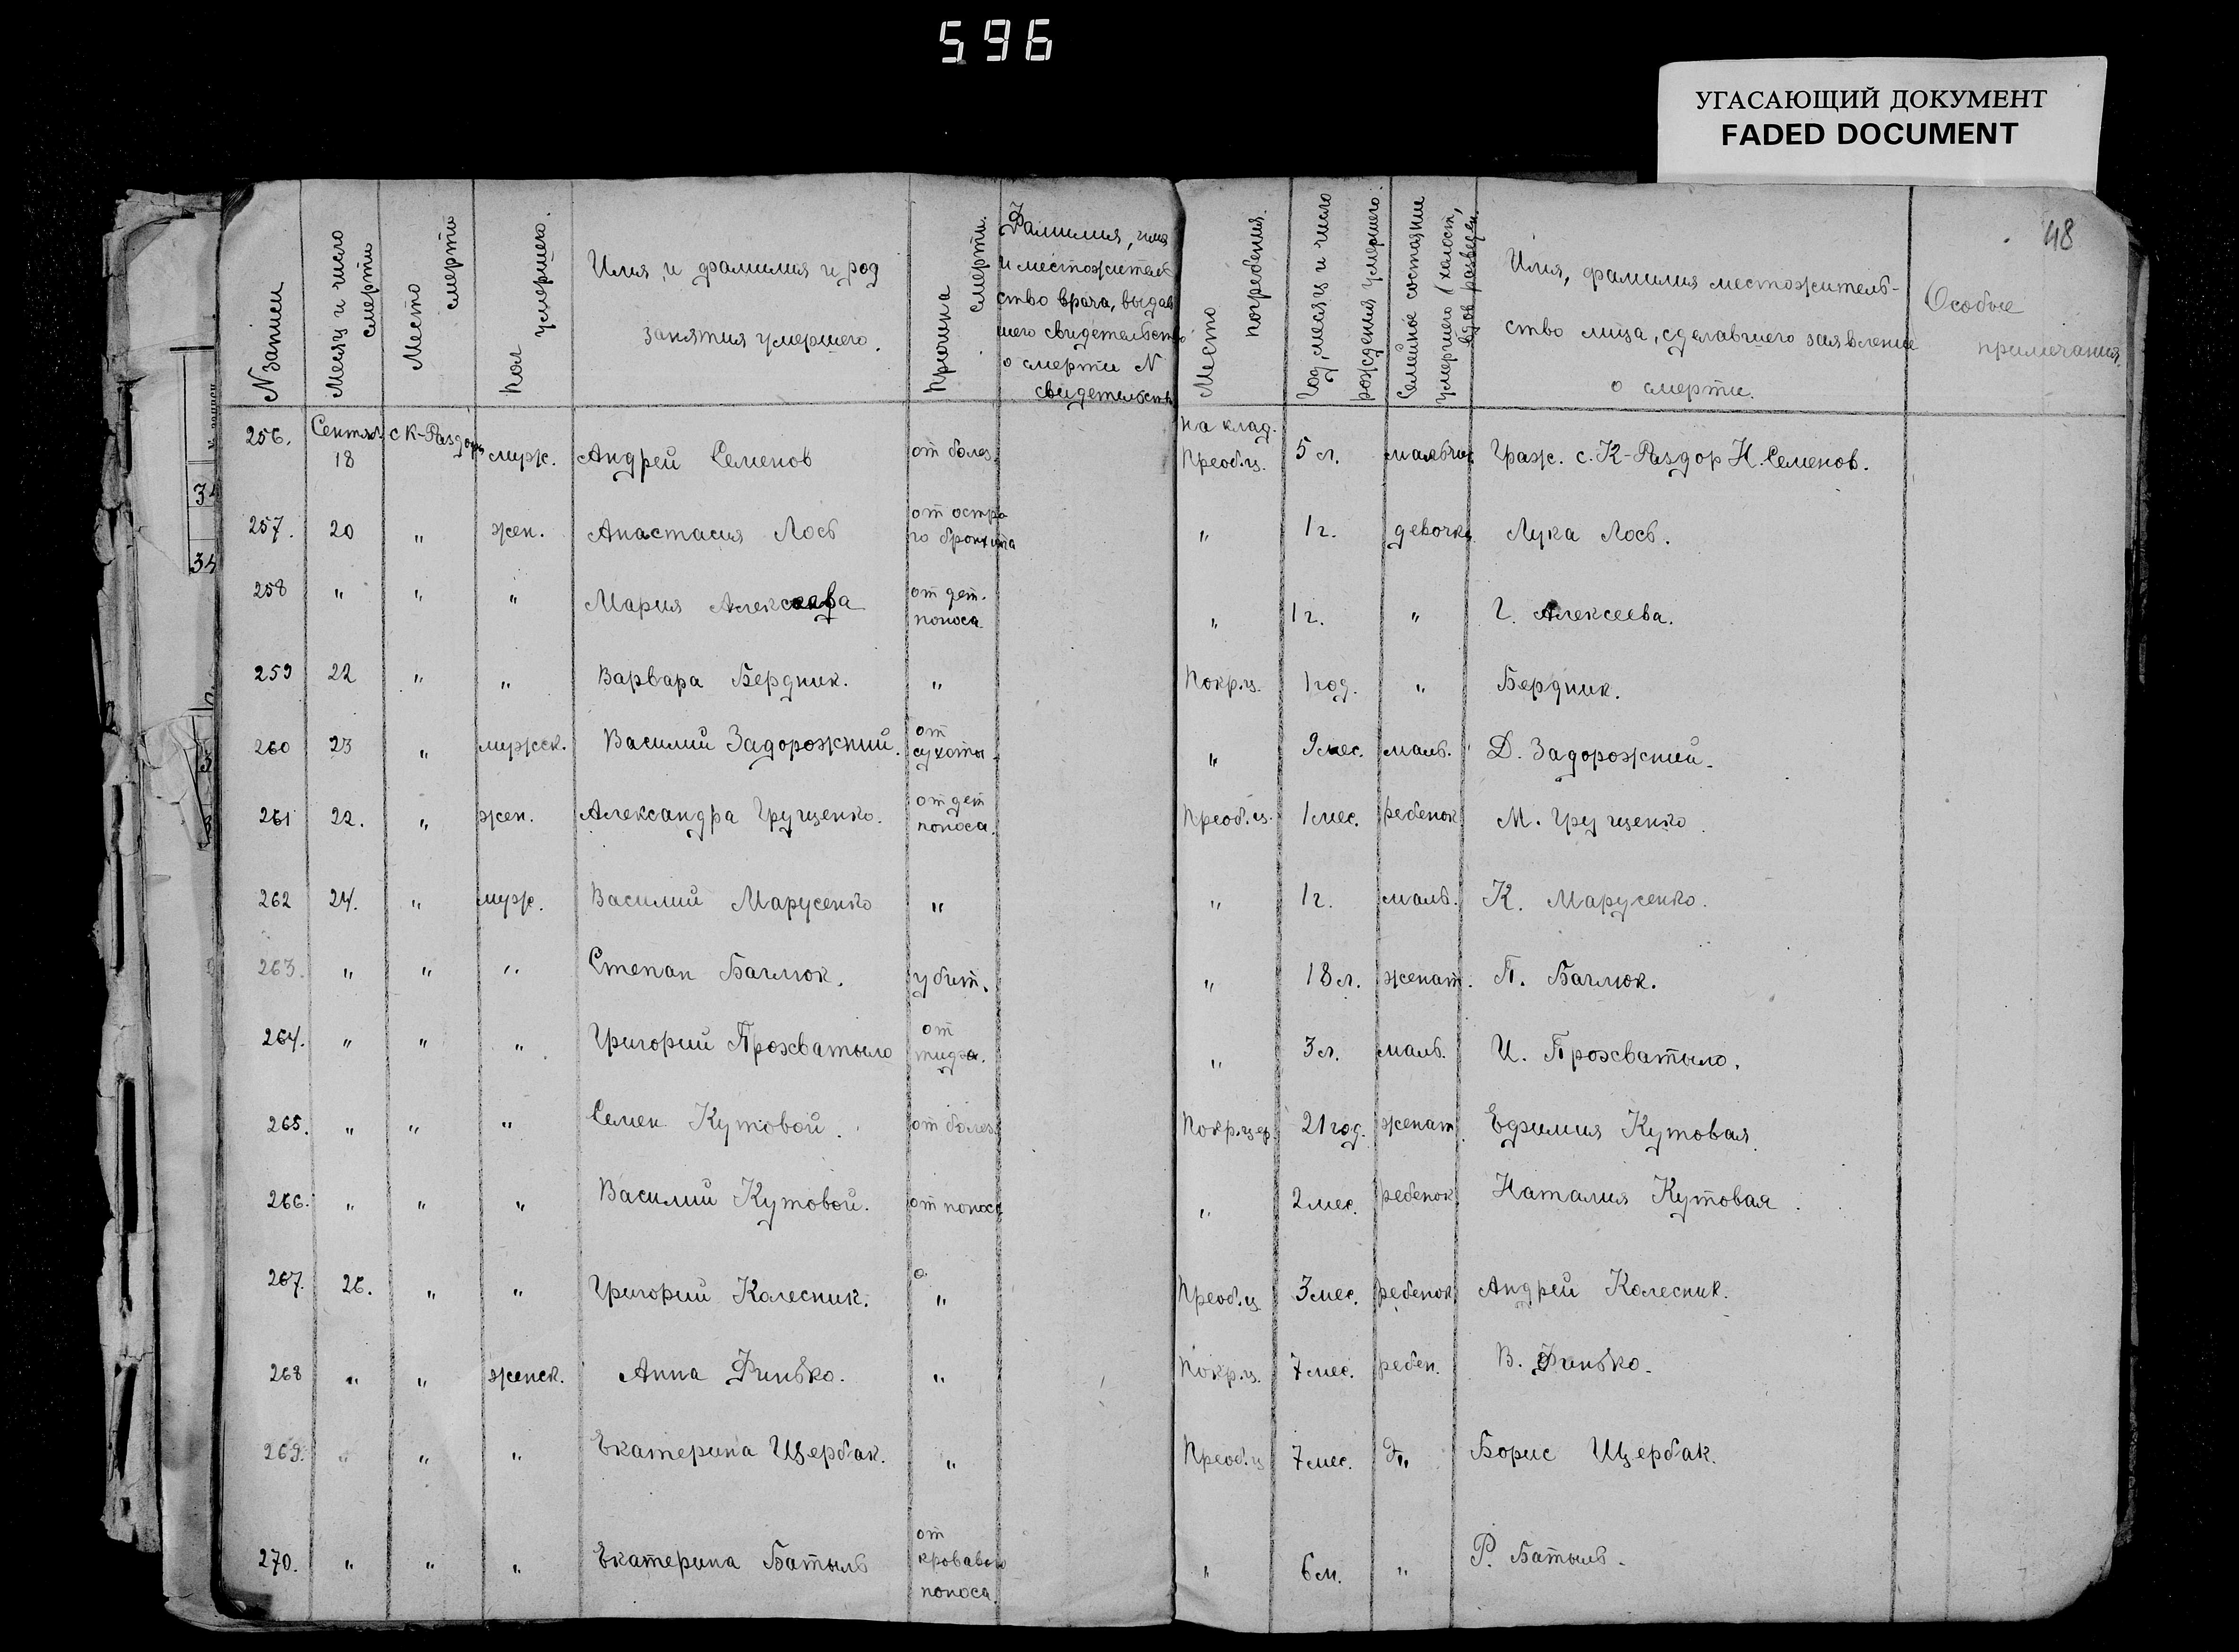 596
УГАСАЮЩИЙ ДОКУМЕНТ
FADED DOCUMENT
48
N записи
Месяц и число смерти
Место смерти
Пол умершего.
Имя и фамилия и род занятия умершего.
Причина смерти.
Фамилия, имя и местожитель ство врача, выдав шего свидетельство о смерти N свидетельств
Место погребения.
Год, месяц и число рождения умершего.
Семейное состояние умершего (холост, вдов разведен.
Имя, фамилия местожитель- ство лица, сделавшего заявление о смерти.
Особые примечания.
256. Сентяб. 18 с К-Раздоры муж. Андрей Семенов от болез. на клад. Преоб.ц. 5 л. мальчик Граж. с. К-Раздор Н. Семенов.
257. 20 " жен. Анастасия Лось от остро го бронхита " 1 г. девочка Лука Лось.
258 " " " Мария Алексеева от дет. поноса. " 1 г. " Г. Алексеева.
259 22 " " Варвара Бердник. " Покр.ц. 1 год. " Бердник.
260 23 " мужск. Василий Задорожний. от сухоты. " 9 мес. маль. Д. Задорожний.
261 22. " жен. Александра Грущенко. от дет поноса. Преоб.ц. 1 мес. ребенок М. Грущенко.
262 24. " муж. Василий Марусенко " " 1 г. маль. К. Марусенко.
263. " " " Степан Баглюк. убит. " 18 л. женат. П. Баглюк.
264. " " " Григорий Прохватыло от " 3 л. маль. И. Прохватыло.
265. " " " Семен Кутовой. от болез. Покр.цер. 21 год. женат. Ефимия Кутовая.
266. " " " Василий Кутовой. от поноса " 2 мес. ребенок Наталия Кутовая.
267. 26. " " Григорий Колесник. " Преоб.ц. 3 мес. ребенок. Андрей Колесник.
268 " " женск. Анна Финько. " Покр.ц. 7 мес. ребен. В. Финько.
269. " " " Екатерина Щербак. " Преоб.ц 7 мес. " Борис Щербак.
270. " " " Екатерина Батыль от кровавого поноса. " 6 м. " Р. Батыль.